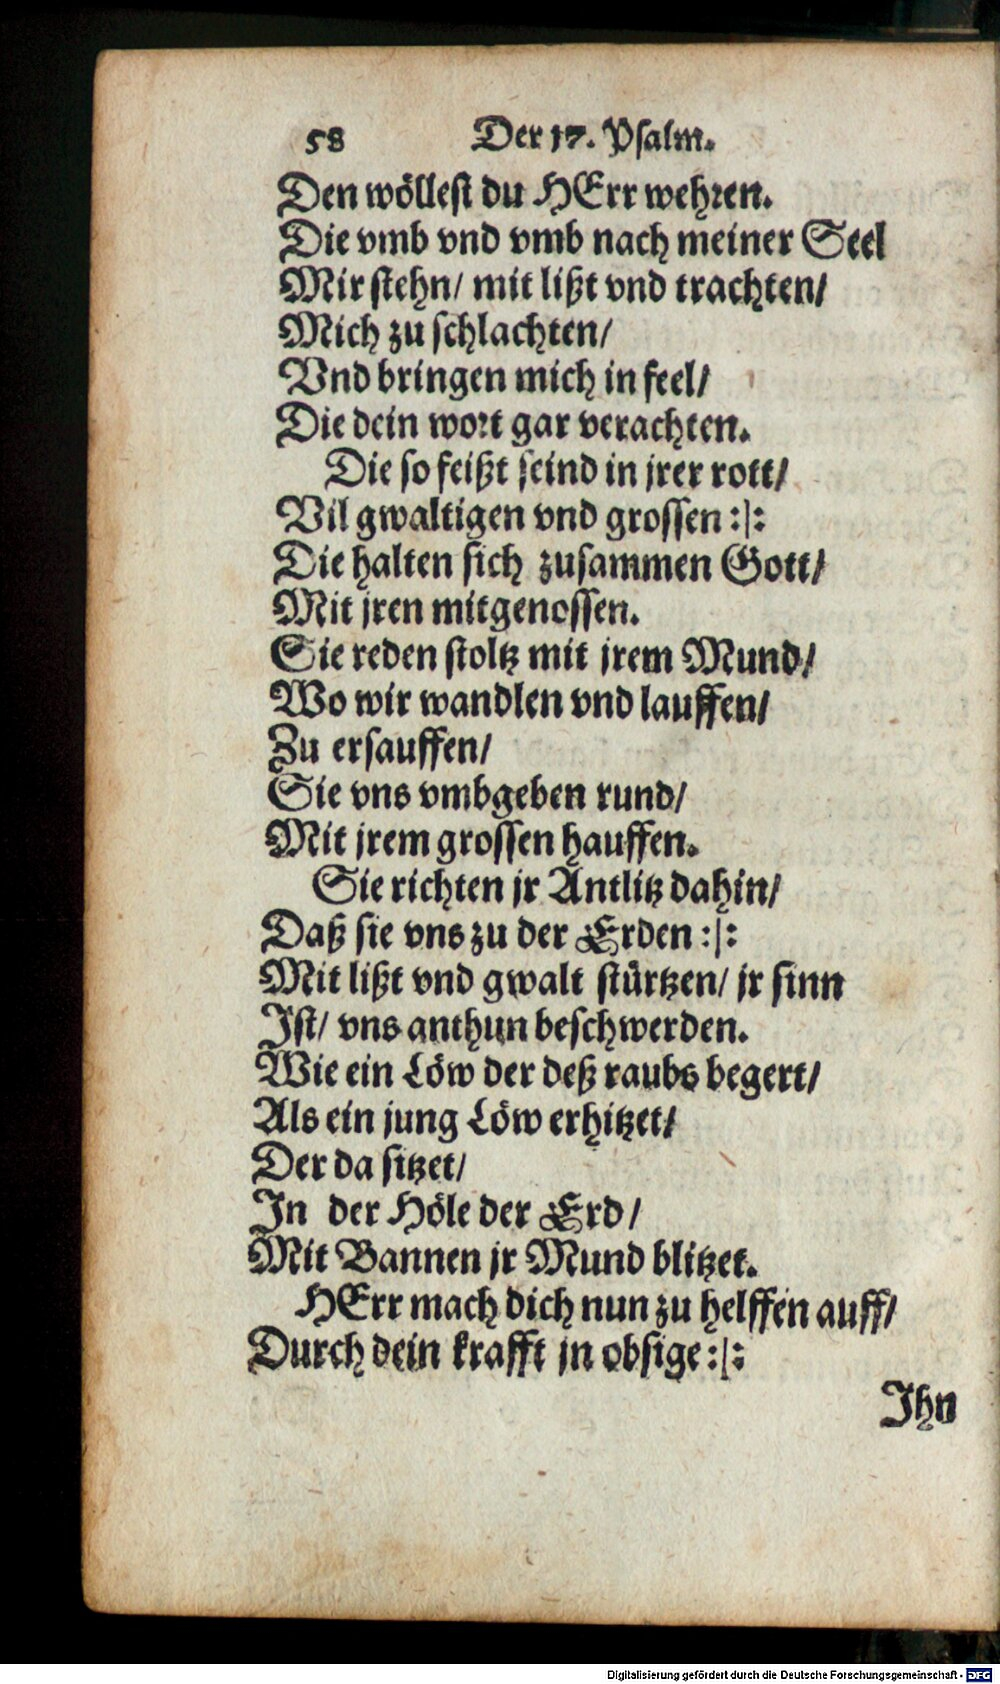 58 Der 17. Psalm.
Den wöllest du HErr wehren.
Die vmb vnd vmb nach meiner Seel
Mir stehn/ mit lißt vnd trachten/
Mich zu schlachten/
Vnd bringen mich in feel/
Die dein wort gar verachten.
Die so feißt seind in jrer rott/
Vil gwaltigen vnd grossen :|:
Die halten sich zusammen Gott/
Mit jren mitgenossen.
Sie reden stoltz mit jrem Mund/
Wo wir wandlen vnd lauffen/
Zu ersauffen/
Sie vns vmbgeben rund/
Mit jrem grossen hauffen.
Sie richten jr Antlitz dahin/
Daß sie vns zu der Erden :|:
Mit lißt vnd gwalt stürtzen/ jr sinn
Ist/ vns anthun beschwerden.
Wie ein Löw der deß raubs begert/
Als ein jung Löw erhitzet/
Der da sitzet/
In der Höle der Erd/
Mit Bannen jr Mund blitzet.
HErr mach dich nun zu helffen auff/
Durch dein krafft jn obsige :|:
Ihn
Digitalisierung gefördert durch die Deutsche Forschungsgemeinschaft - DFG